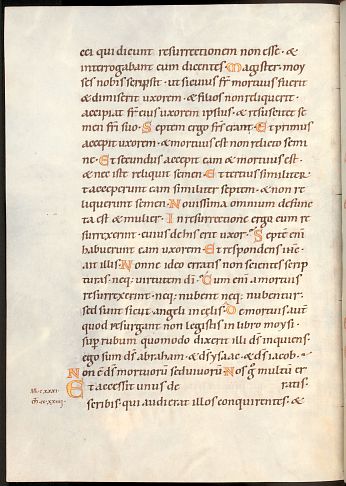 cei qui dicunt resurrectionem non esse · &
interrogabant eum dicentes · Magister · moy
ses nobis scripsit · ut si cuius fr̄ mortuus fuerit
& dimiserit uxorem · & filios non reliquerit ·
accipiat fr̄ eius uxorem ipsius · & resuscitet se
men frī suo · Septem ergo frs̄ erant · Et primus
accepit uxorem · & mortuus est non relicto semi
ne · Et secundus accepit eam & mortuus est ·
& nec iste reliquit semen · Et tercius similiter ·
et acceperunt eam similiter septem · & non re
liquerunt semen · Novissima omnium defunc
ta est & mulier · In resurrectione ergo cum re
surrexerint · cuius de his erit uxor · Septē enī
habuerunt eam uxorem · Et respondens ihc̄ ·
ait illis · Nonne ideo erratis non scientes scrip
turas · neq; virtutem dī · Cum enī a mortuis
resurrexerint · neq; nubent neq; nubentur ·
sed sunt sicut angeli in cęlis · De mortuis aut̄
quod resurgant non legistis in libro moysi ·
sup̄ rubum quomodo dixerit illi ds̄ inquiens ·
ego sum ds̄ abraham · & ds̄ ysaac · & ds̄ iacob ·
Non ē ds̄ mortuorū sed vivorū · Vos g̊ multū er
Et accessit unus de ratis ·
scribis · qui audierat illos conquirentes · &